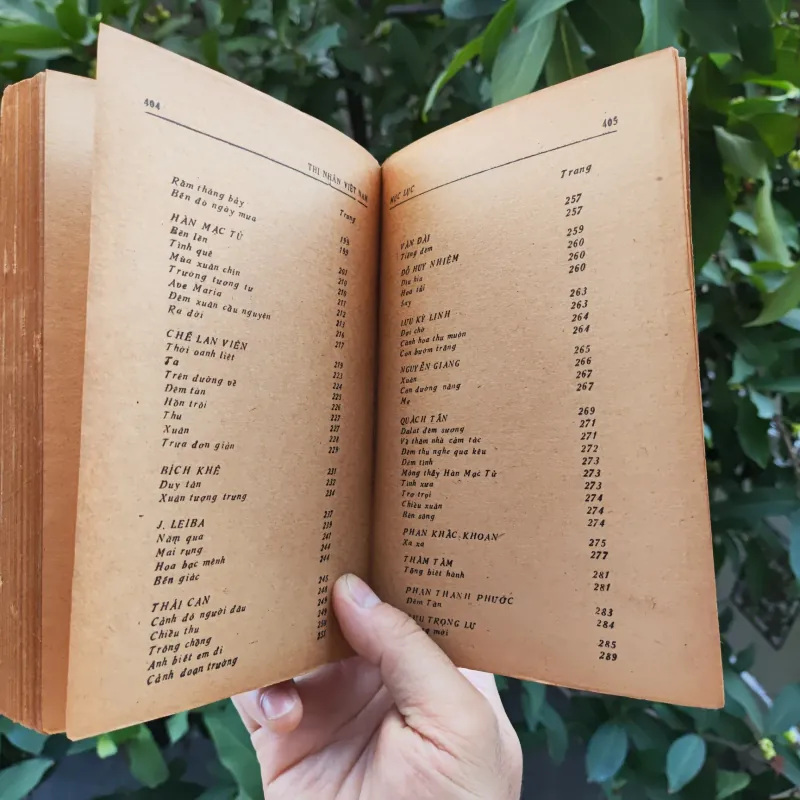 404
THI NHÂN VIỆT NAM
Trang
Rằm tháng bảy
Bến đò ngày mưa
HÀN MẠC TỬ
Bẽn lẽn
Tình quê
Mùa xuân chín
Trường tương tư
Ave Maria
Đêm xuân cầu nguyện
Ra đời
CHẾ LAN VIÊN
Thời oanh liệt
Ta
Trên đường về
Đêm tàn
Hồn trôi
Thu
Xuân
Trưa đơn giản
BÍCH KHÊ
Duy tân
Xuân tượng trưng
J. LEIBA
Năm qua
Mai rụng
Hoa bạc mệnh
Bến giác
THÁI CAN
Cảnh đó người đâu
Chiều thu
Trông chồng
Anh biết em đi
Cảnh đoạn trường
195
199
201
210
210
211
212
215
216
217
219
223
224
225
226
227
228
229
231
232
234
237
238
244
244
245
248
249
249
250
251
405
MỤC LỤC
Trang
VÂN ĐÀI
Tặng đơm
ĐỖ HUY NHIỆM
Dìu hìa
Họa tải
Say
LƯU KỲ LINH
Đợi chờ
Cảnh họa thu muộn
Con bướm trắng
NGUYỄN GIANG
Xuân
Con đường nắng
Mẹ
QUÁCH TẤN
Dalat đêm sương
Về thăm nhà cảm tác
Đêm thu nghe quạ kêu
Đêm tình
Mộng thấy Hàn Mạc Tử
Tình xưa
Trơ trọi
Chiều xuân
Bên sông
PHAN KHẮC KHOAN
Xa xa
THÂM TÂM
Tống biệt hành
PHAN THANH PHƯỚC
Đêm Tần
TRỌNG LƯ
mới
257
257
259
260
260
260
263
263
264
264
265
266
267
267
269
271
271
272
273
273
273
274
274
274
275
277
281
281
283
284
285
289